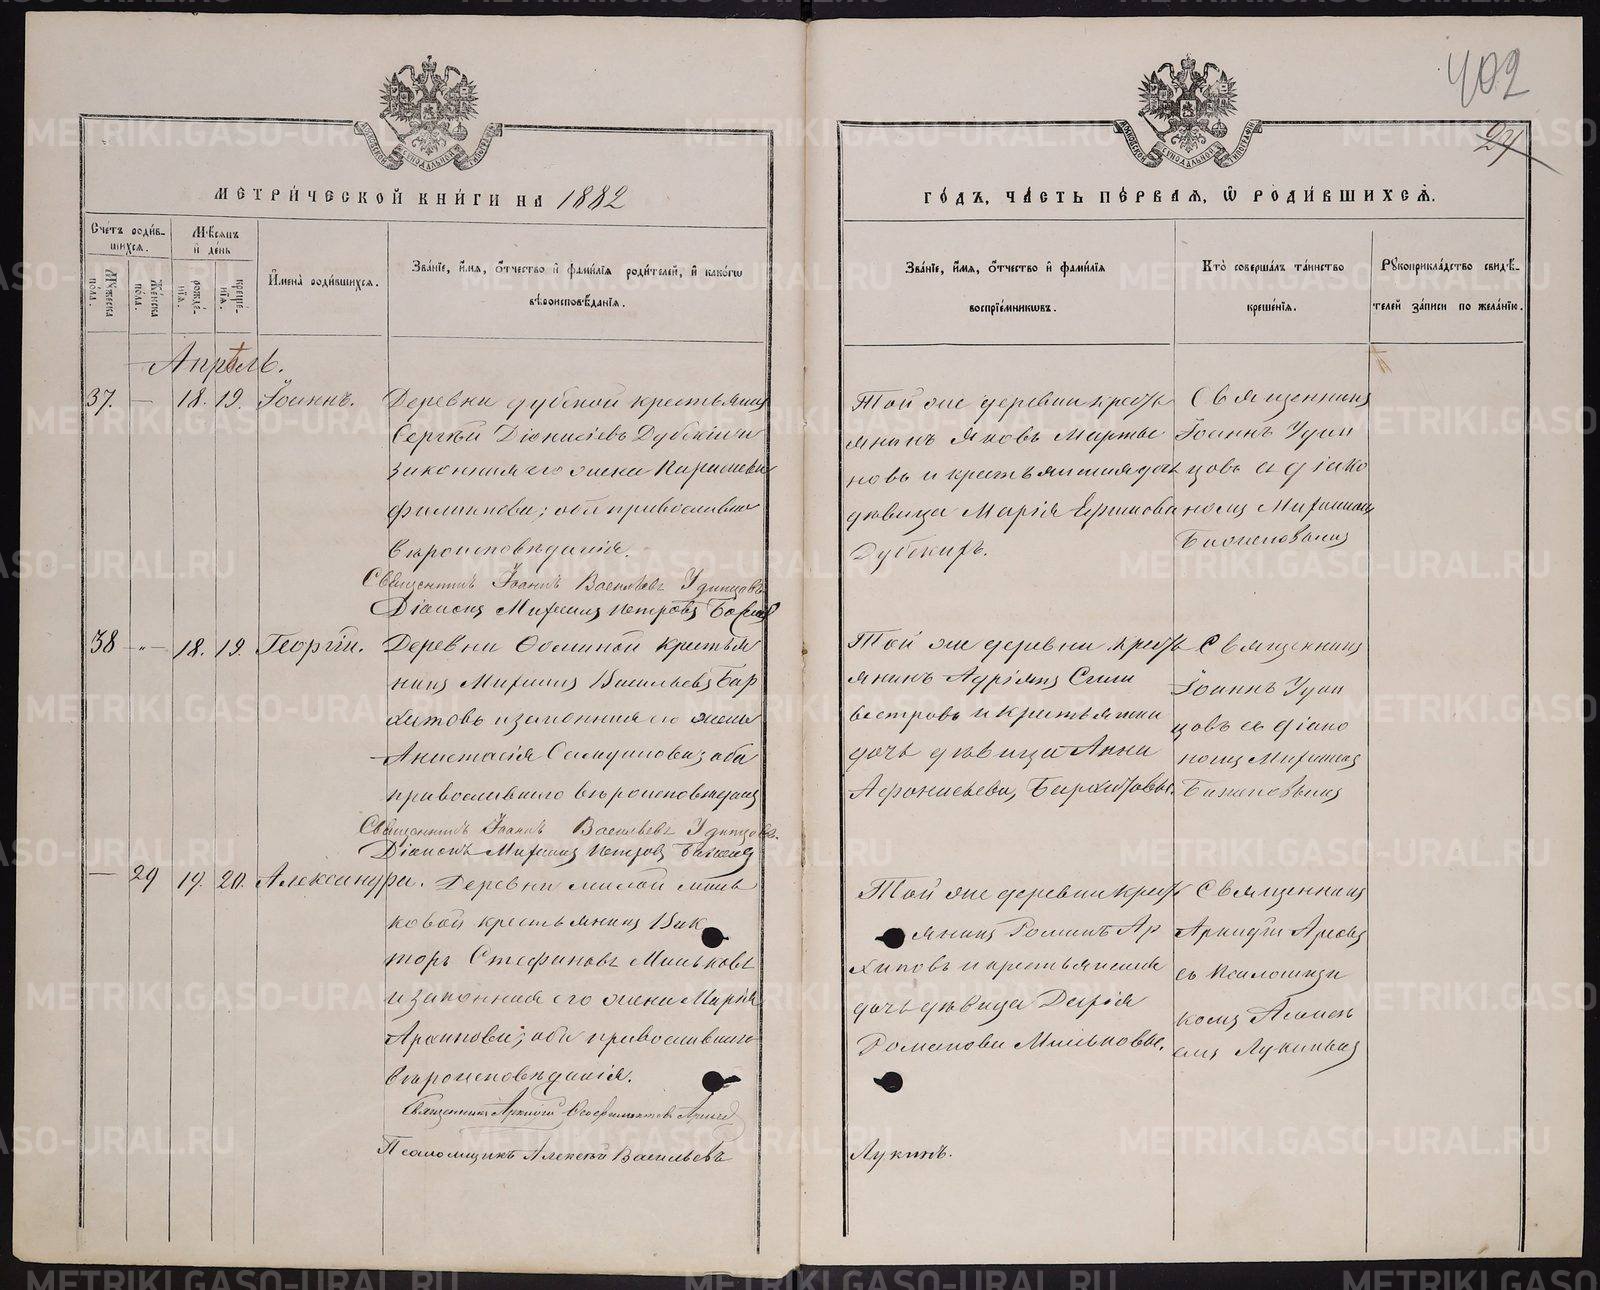 402
21
МЕТРИ́ЧЕСКОЙ КНИ́ГИ НА 1882
ГО́ДЪ, ЧА́СТЬ ПЕ́РВАЯ, Ѡ РОДИ́ВШИХСЯ.
Сче́тъ роди́в-
шихся.
Мѣ́сяцъ
и де́нь
Му́жеска
по́ла.
Же́нска
по́ла.
рожде́-
нїя.
креще́-
нїя.
И҆мена̀ роди́вшихся.
Зва́нїе, и҆́мя, ѻ҆́тчество и҆ фами́лїя роди́телей, и҆ како́гѡ
вѣроисповѣ́данїя.
Зва́нїе, и҆́мя, ѻ҆́тчество и҆ фами́лїя
воспрїе́мникѡвъ.
Кто̀ соверша́лъ та́инство
креще́нїя.
Рꙋкоприкла́дство свидѣ́-
телей за́писи по жела́нїю.
Апрѣль.
37. — 18. 19. Іоаннъ.
Деревни Дубской крестьянинъ
Сергѣй Діонисіевъ Дубскій и
законная его жена Параскева
Филиппова; оба православнаго
вѣроисповѣданія.
Священникъ Іоаннъ Васильевъ Удинцовъ
Діаконъ Михаилъ Петровъ
Той же деревни кресть
янинъ Яковъ Мартья
новъ и крестьянская дочь
дѣвица Марія Ефимова
Дубскихъ.
Священникъ
Іоаннъ Удин
цовъ съ діако
номъ Михаиломъ
38 — „ — 18. 19. Георгій.
Деревни крестья
нинъ Михаилъ Васильевъ Бар
хатовъ и законная его жена
Анастасія оба
православнаго вѣроисповѣданія
Священникъ Іоаннъ Васильевъ Удинцовъ.
Діаконъ Михаилъ Петровъ
Той же деревни кресть
янинъ Адріанъ Силь
вестровъ и крестьянская
дочь дѣвица Анна
Афанасьева, Бархатовы.
Священникъ
Іоаннъ Удин
цовъ съ діако
номъ Михаиломъ
— 29 19. 20. Александра.
Деревни малой Миль
ковой крестьянинъ Вик
торъ Стефановъ Мильковъ
и законная его жена Марія
оба православнаго
вѣроисповѣданія.
Священникъ Аркадій
Псаломщикъ Алексѣй Васильевъ
Лукинъ.
Той же деревни кресть
янинъ Романъ Ар
хиповъ и крестьянская
дочь дѣвица Дарія
Романова Мильковы.
Священникъ
Аркадій
съ псаломщи
комъ Алексѣ
емъ Лукинымъ
METRIKI.GASO-URAL.RU